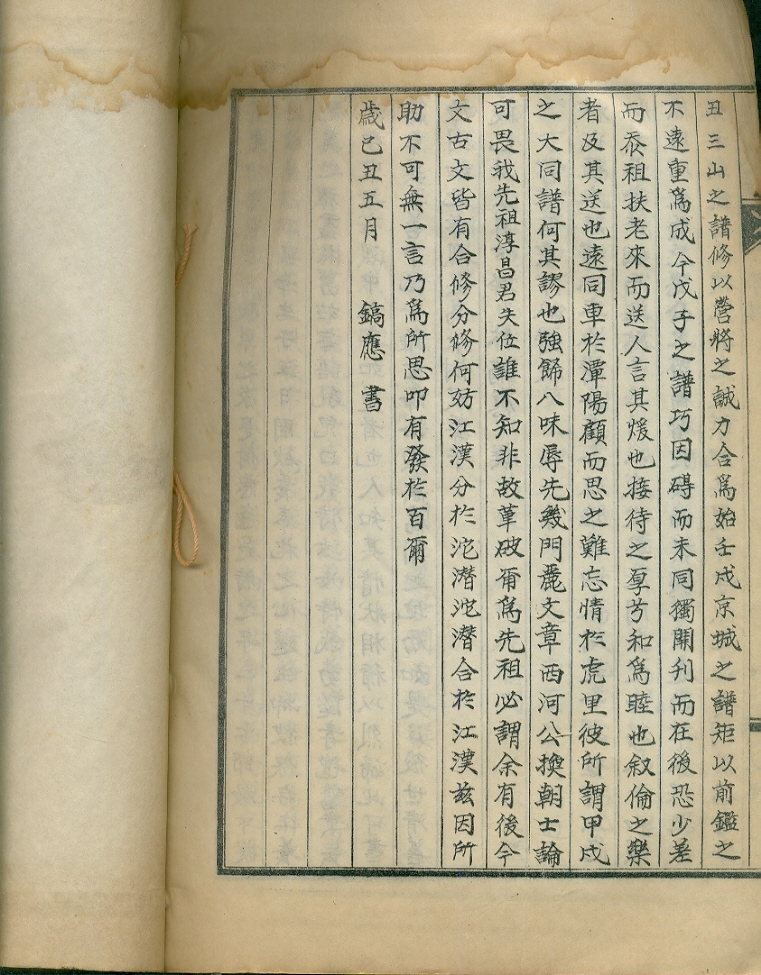 丑三山之譜修以營將之誠力合爲始壬戌京城之譜矩以前鑑之
不遠重爲成今戊子之譜巧因碍而未同獨開刊而在後恐少差
而忝祖扶老來而送人言其煖也接待之厚兮和爲睦也叙倫之樂
者及其送也遠同車於潭陽顧而思之難忘情於虎里彼所謂甲戌
之大同譜何其謬也強歸八味辱先幾門麗文章西河公換朝士論
可畏我先祖淳昌君失位誰不知非故革破甭爲先祖必謂余有後今
文古文皆有合修分修何妨江漢分於沱潛沱潛合於江漢玆因所
助不可無一言乃爲所思叩有發於百爾
歲己丑五月 鎬應 書